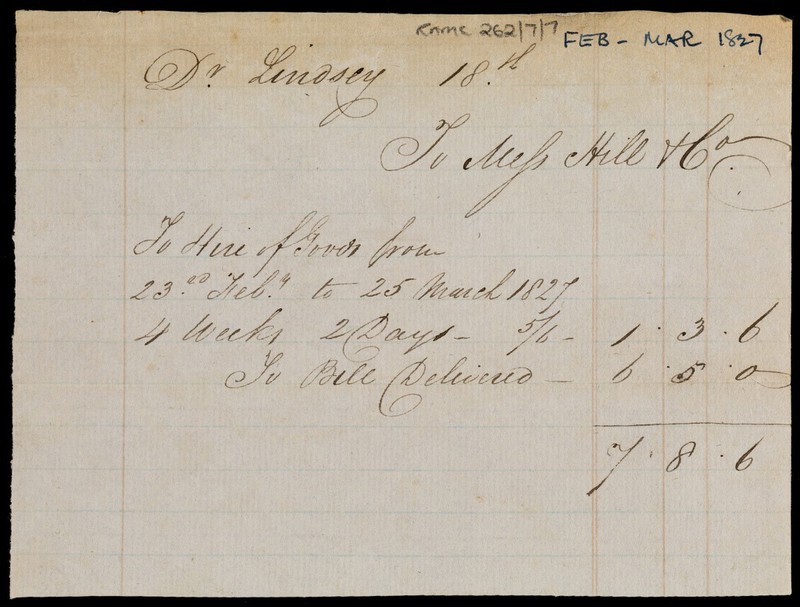 RAMC 262/7/7 FEB - MAR 1827
Dr. Lindsey 18th
To Mess Hill & Co
To Hire of Goods from
23.rd Feb.y to 25 March 1827
4 Weeks 2 Days - 5/6 - 1 . 3 . 6
To Bill Delivered - 6 . 5 . 0
7 . 8 . 6